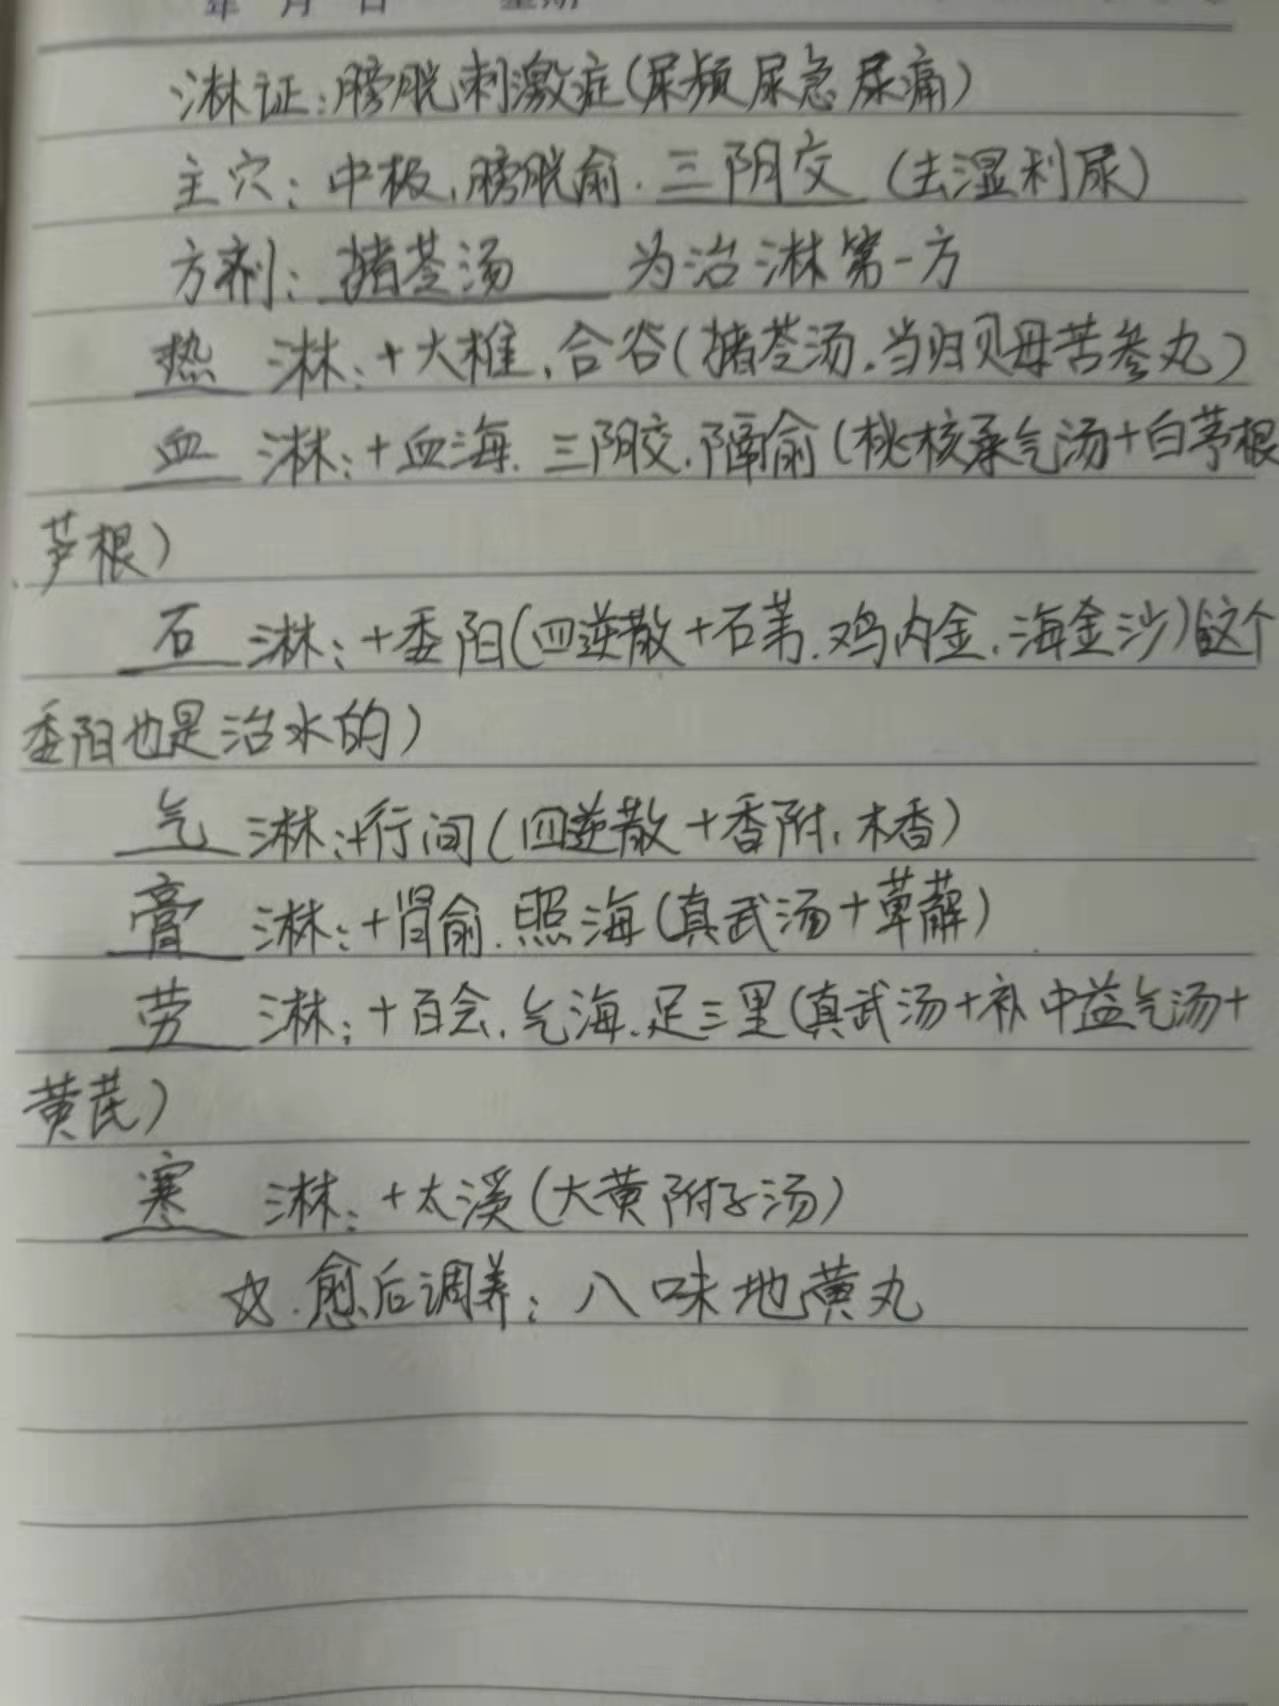 年 月 日 星期
淋证:膀胱刺激症(尿频尿急尿痛)
主穴:中极、膀胱俞.三阴交(去湿利尿)
方剂:猪苓汤 为治淋第一方
热 淋:+大椎、合谷(猪苓汤.当归贝母苦参丸)
血 淋:+血海.三阴交.隔俞(桃核承气汤+白茅根
、芦根)
石 淋:+委阳(四逆散+石苇.鸡内金、海金沙)(这个
委阳也是治水的)
气 淋:+行间(四逆散+香附、木香)
膏 淋:+肾俞.照海(真武汤+萆薢)
劳 淋:+百会.气海.足三里(真武汤+补中益气汤+
黄芪)
寒 淋:+太溪(大黄附子汤)
☆.愈后调养:八味地黄丸